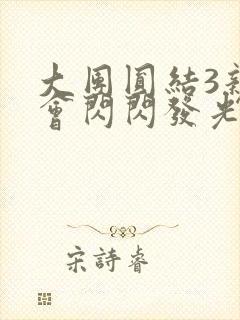 大團圓結3
會閃閃發光
宋詩睿